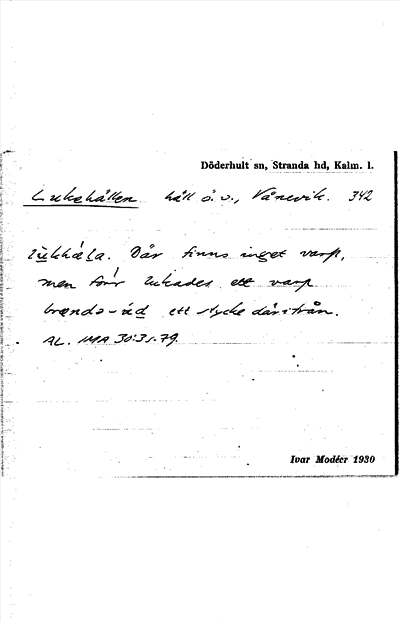 Döderhult sn, Stranda hd, Kalm. l.
Lukehällen häll ö. v., Vånevik. 342
Där finns inget varp,
men förr lukades ett varp
ett stycke därifrån.
AL. IMA 30:31.79.
Ivar Modéer 1930